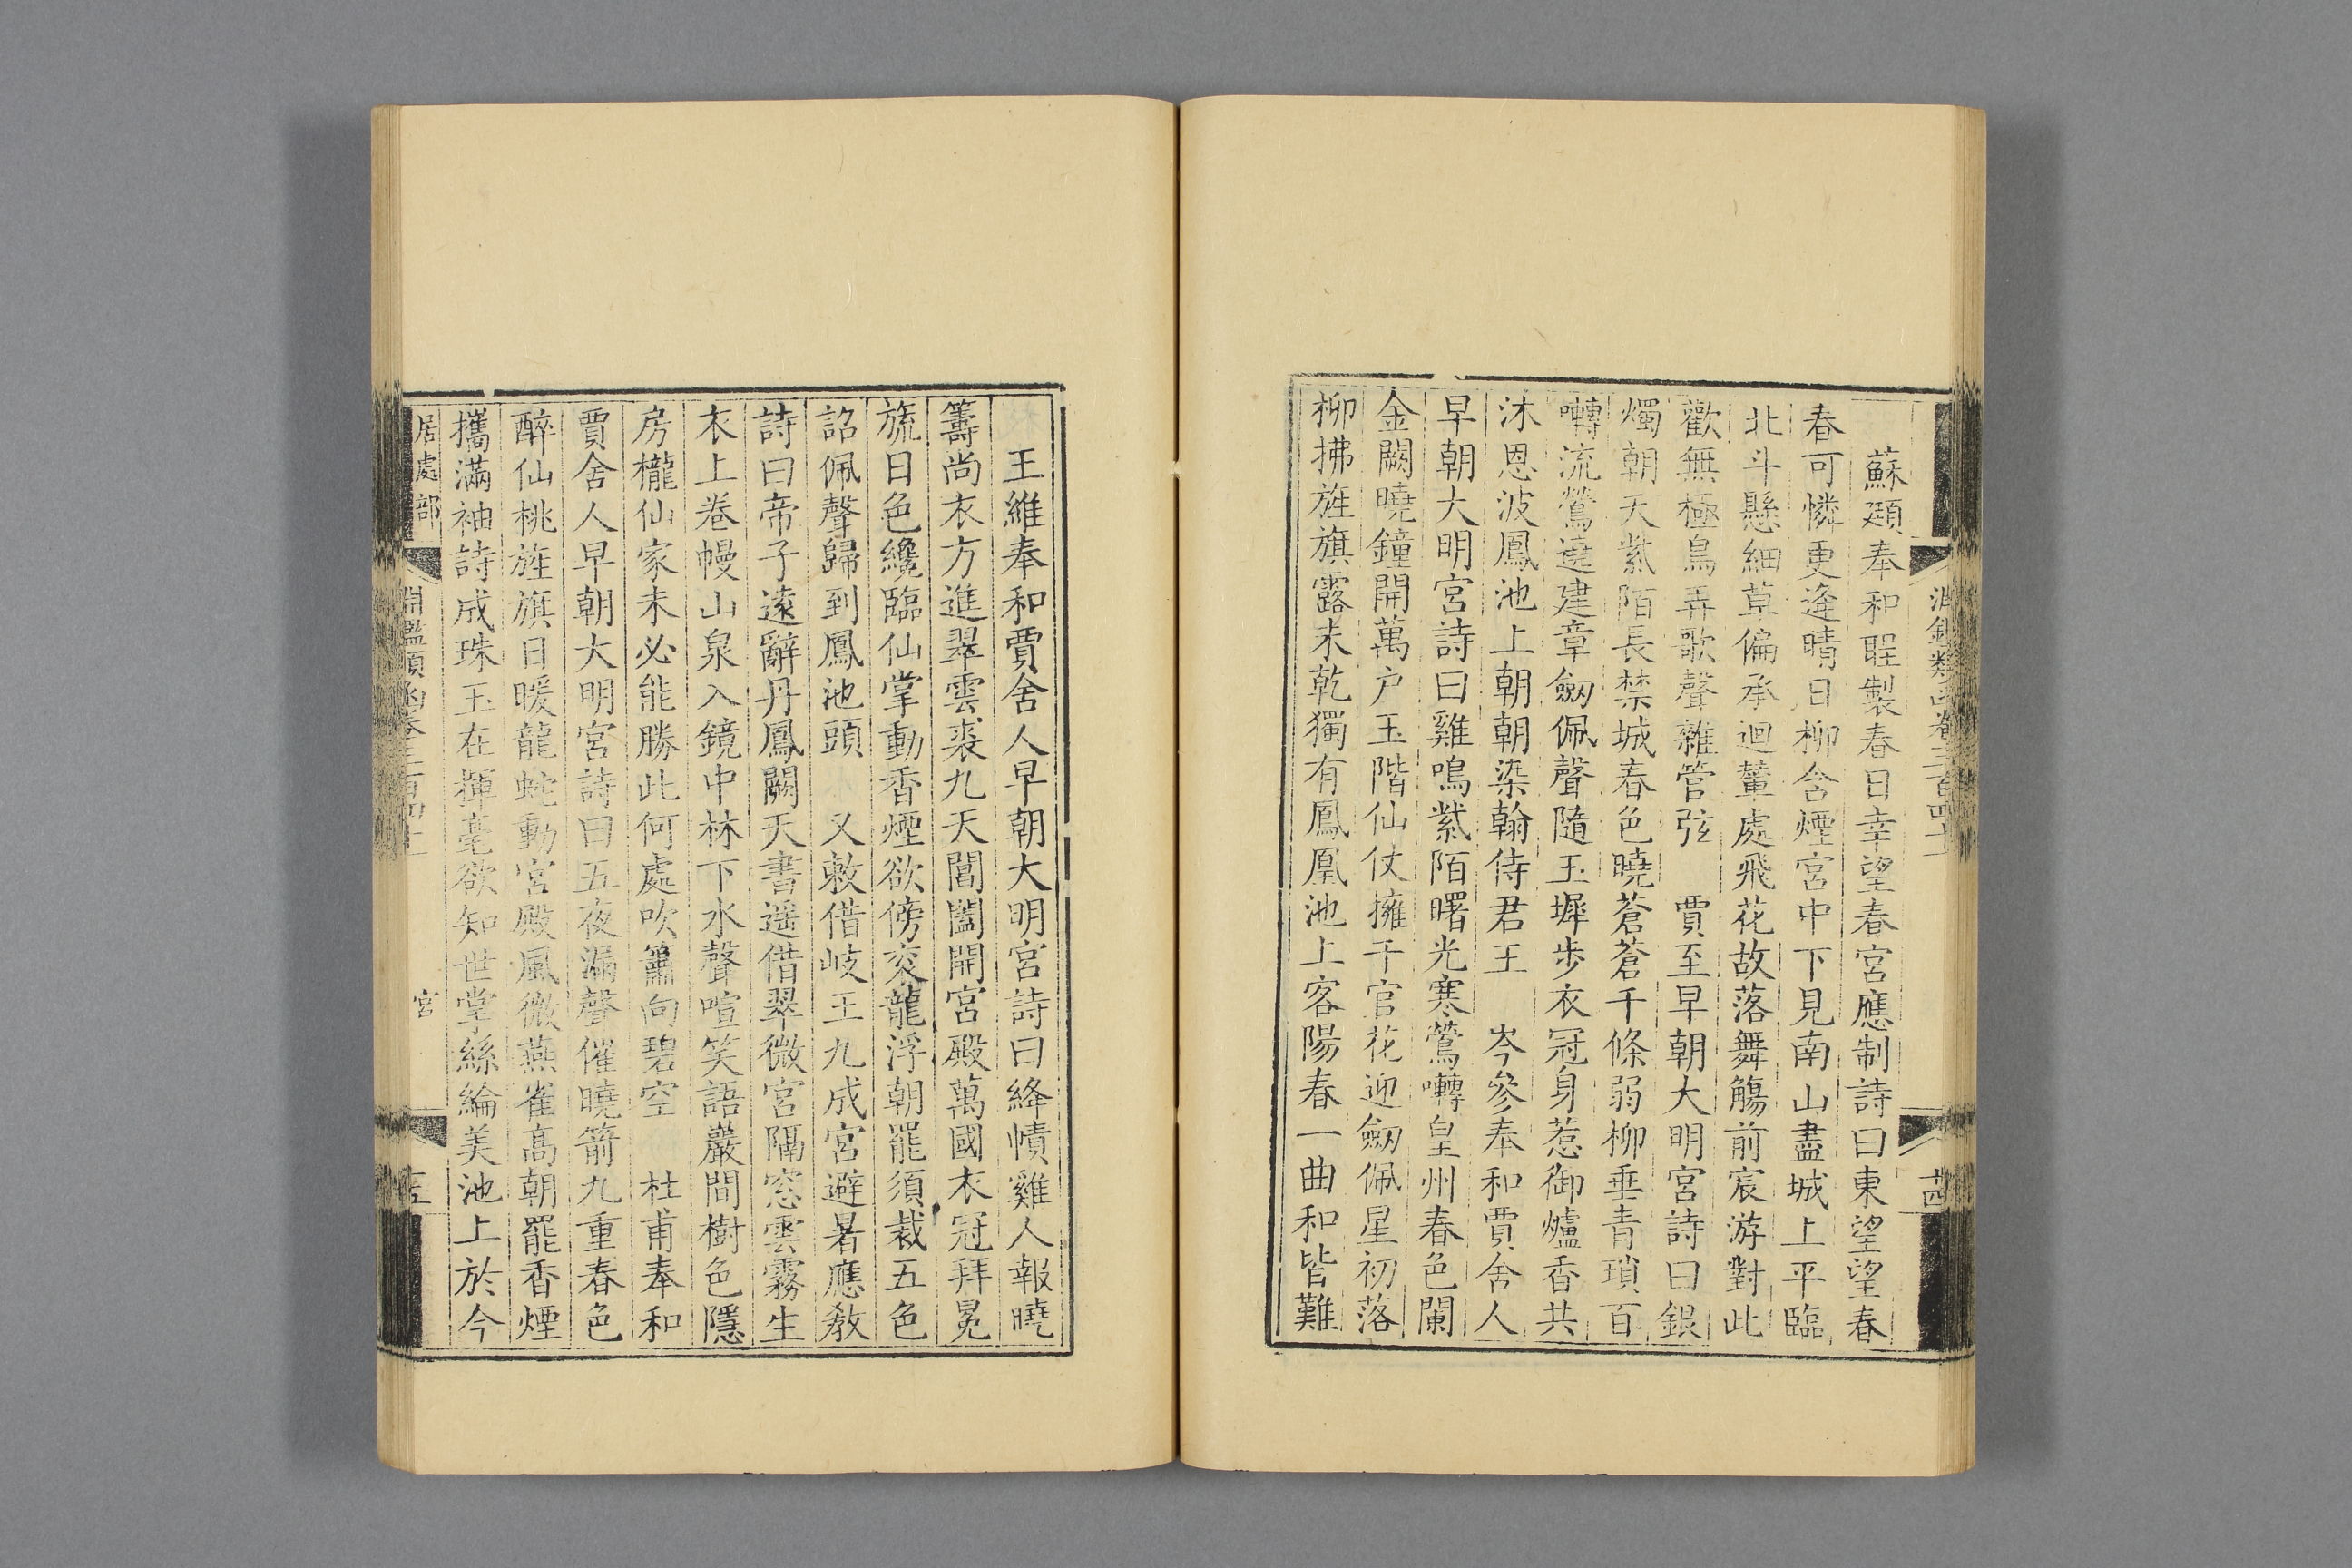 蘇頲奉和聖製春日幸望春宮應制詩曰東望望春
春可憐更逢晴日柳含煙宮中下見南山盡城上平臨
北斗懸細草偏承迴輦處飛花故落舞觴前宸游對此
歡無極鳥弄歌聲雜管弦 賈至早朝大明宮詩曰銀
燭朝天紫陌長禁城春色曉蒼蒼千條弱柳垂青瑣百
囀流鶯遶建章劒佩聲隨玉墀步衣冠身惹御爐香共
沐恩波鳳池上朝朝染翰侍君王 岑參奉和賈舍人
早朝大明宮詩曰雞鳴紫陌曙光寒鶯囀皇州春色闌
金闕曉鐘開萬户玉階仙仗擁千官花迎劒佩星初落
柳拂旌旗露未乾獨有鳳凰池上客陽春一曲和皆難
十四
王維奉和賈舍人早朝大明宮詩曰絳幘雞人報曉
籌尚衣方進翠雲裘九天閶闔開宮殿萬國衣冠拜冕
旒日色纔臨仙掌動香煙欲傍衮龍浮朝罷須裁五色
詔佩聲歸到鳳池頭 又敕借岐王九成宮避暑應教
詩曰帝子遠辭丹鳳闕天書遥借翠微宮隔窓雲霧生
衣上卷幔山泉入鏡中林下水聲喧笑語巖間樹色隱
房櫳仙家未必能勝此何處吹簫向碧空 杜甫奉和
賈舍人早朝大明宮詩曰五夜漏聲催曉箭九重春色
醉仙桃旌旗日暖龍蛇動宮殿風微燕雀高朝罷香煙
攜滿袖詩成珠玉在揮毫欲知世掌絲綸美池上於今
居處部 淵鑑類函卷三百四十 宮